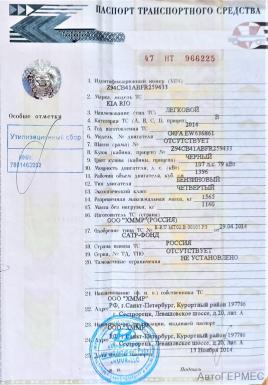 ПАСПОРТ ТРАНСПОРТНОГО СРЕДСТВА
47 НТ 966225
Особые отметки
Утилизационный сбор
1. Идентификационный номер (VIN)
Z94CB41ABFR259433
2. Марка, модель ТС
KIA RIO
3. Наименование (тип ТС) ЛЕГКОВОЙ
4. Категория ТС (А, В, С, D, прицеп) В
5. Год изготовления ТС 2014
6. Модель, № двигателя G4FA EW636861
7. Шасси (рама) № ОТСУТСТВУЕТ
8. Кузов (кабина, прицеп) № Z94CB41ABFR259433
9. Цвет кузова (кабины, прицепа) ЧЕРНЫЙ
10. Мощность двигателя, л. с. (кВт) 107 л.с 79 кВт
11. Рабочий объем двигателя, куб. см 1396
12. Тип двигателя БЕНЗИНОВЫЙ
13. Экологический класс ЧЕТВЕРТЫЙ
14. Разрешенная максимальная масса, кг 1565
15. Масса без нагрузки, кг 1160
16. Изготовитель ТС (страна)
ООО "ХММР"(РОССИЯ)
17. Одобрение типа ТС № 29.04.2014
САТР-ФОНД
18. Страна вывоза ТС РОССИЯ
19. Серия, № ТД, ТПО ОТСУТСТВУЕТ
20. Таможенные ограничения НЕ УСТАНОВЛЕНО
21. Наименование (ф. и. о.) собственника ТС
ООО "ХММР"
22. Адрес РФ, г.Санкт-Петербург, Курортный район 197706
г.Сестрорецк, Левашовское шоссе, д.20, лит. А
23. Наименование организации, выдавшей паспорт
24. Адрес РФ, г.Санкт-Петербург, Курортный район 197706
г.Сестрорецк, Левашовское шоссе, д.20, лит. А
25. Дата выдачи паспорта 13 Ноября 2014
М. П. Подпись
АвтоГЕРМЕС